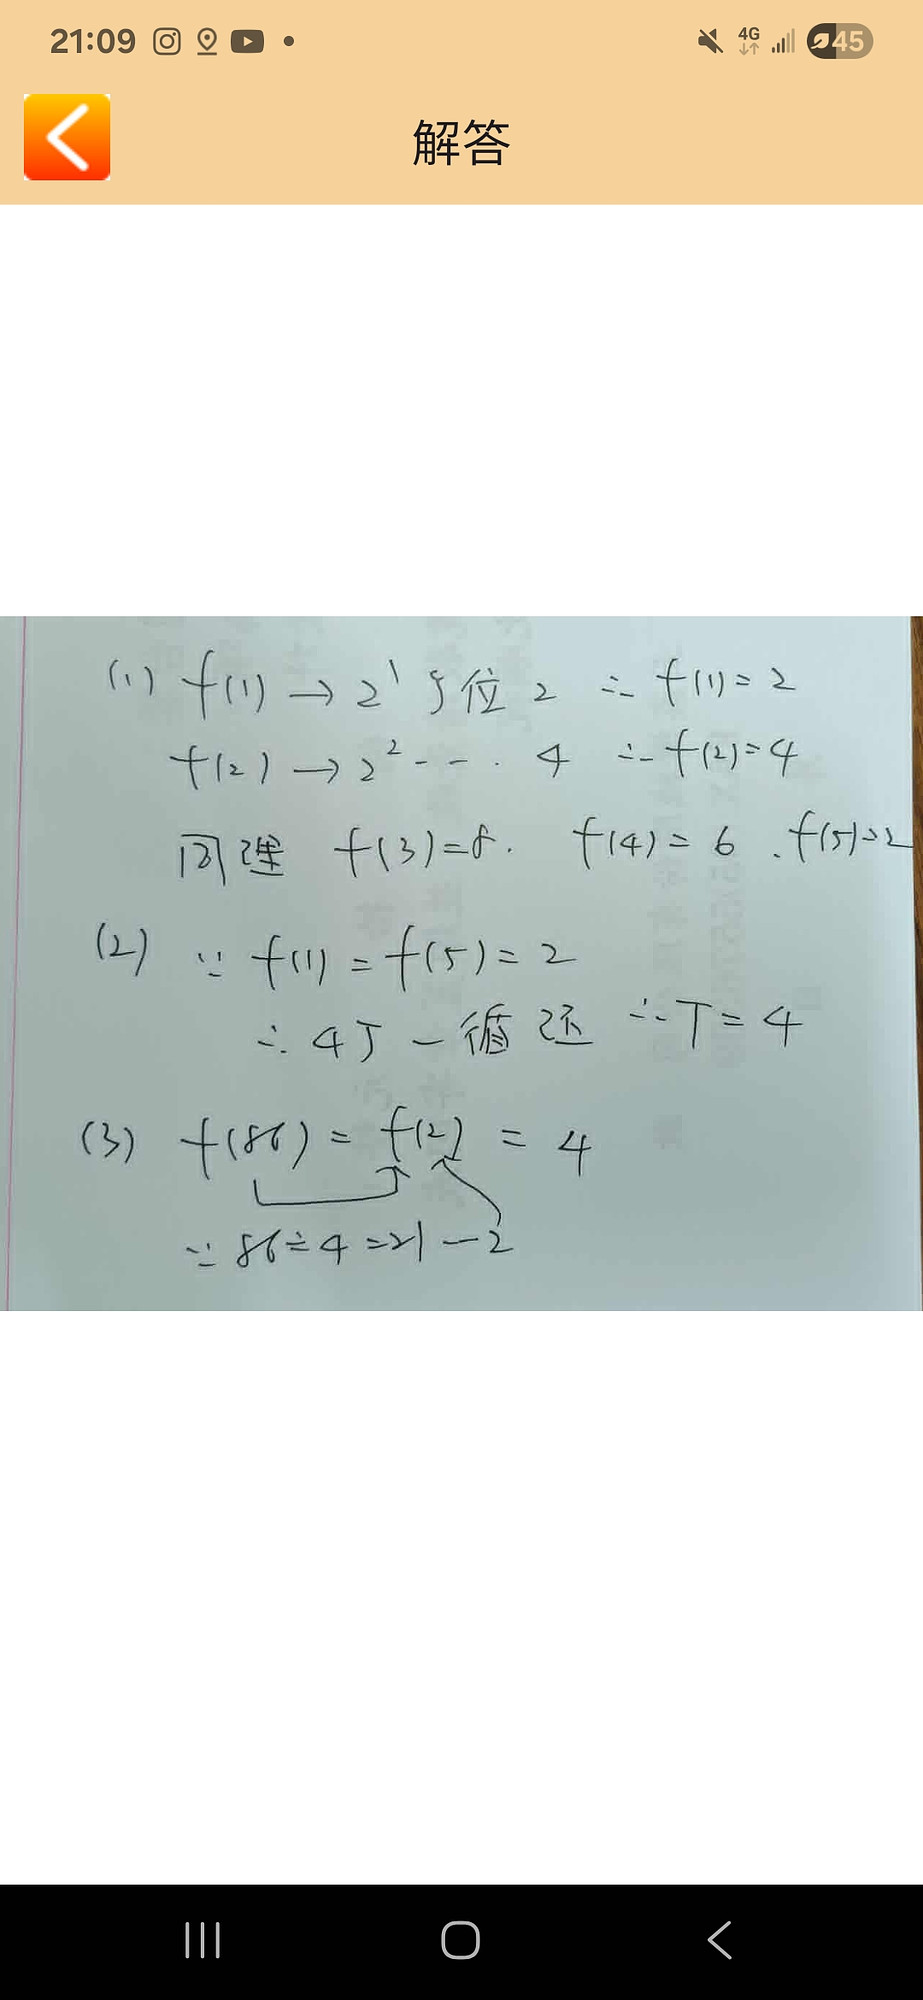 21:09
4G
45
解答
(1) f(1) → 2¹ 个位 2 ∴ f(1) = 2
f(2) → 2² - - · 4 ∴ f(2) = 4
同理 f(3) = 8. f(4) = 6 . f(5) = 2
(2) ∵ f(1) = f(5) = 2
∴ 4个一循还 ∴ T = 4
(3) f(86) = f(2) = 4
∵ 86 ÷ 4 = 21 — 2